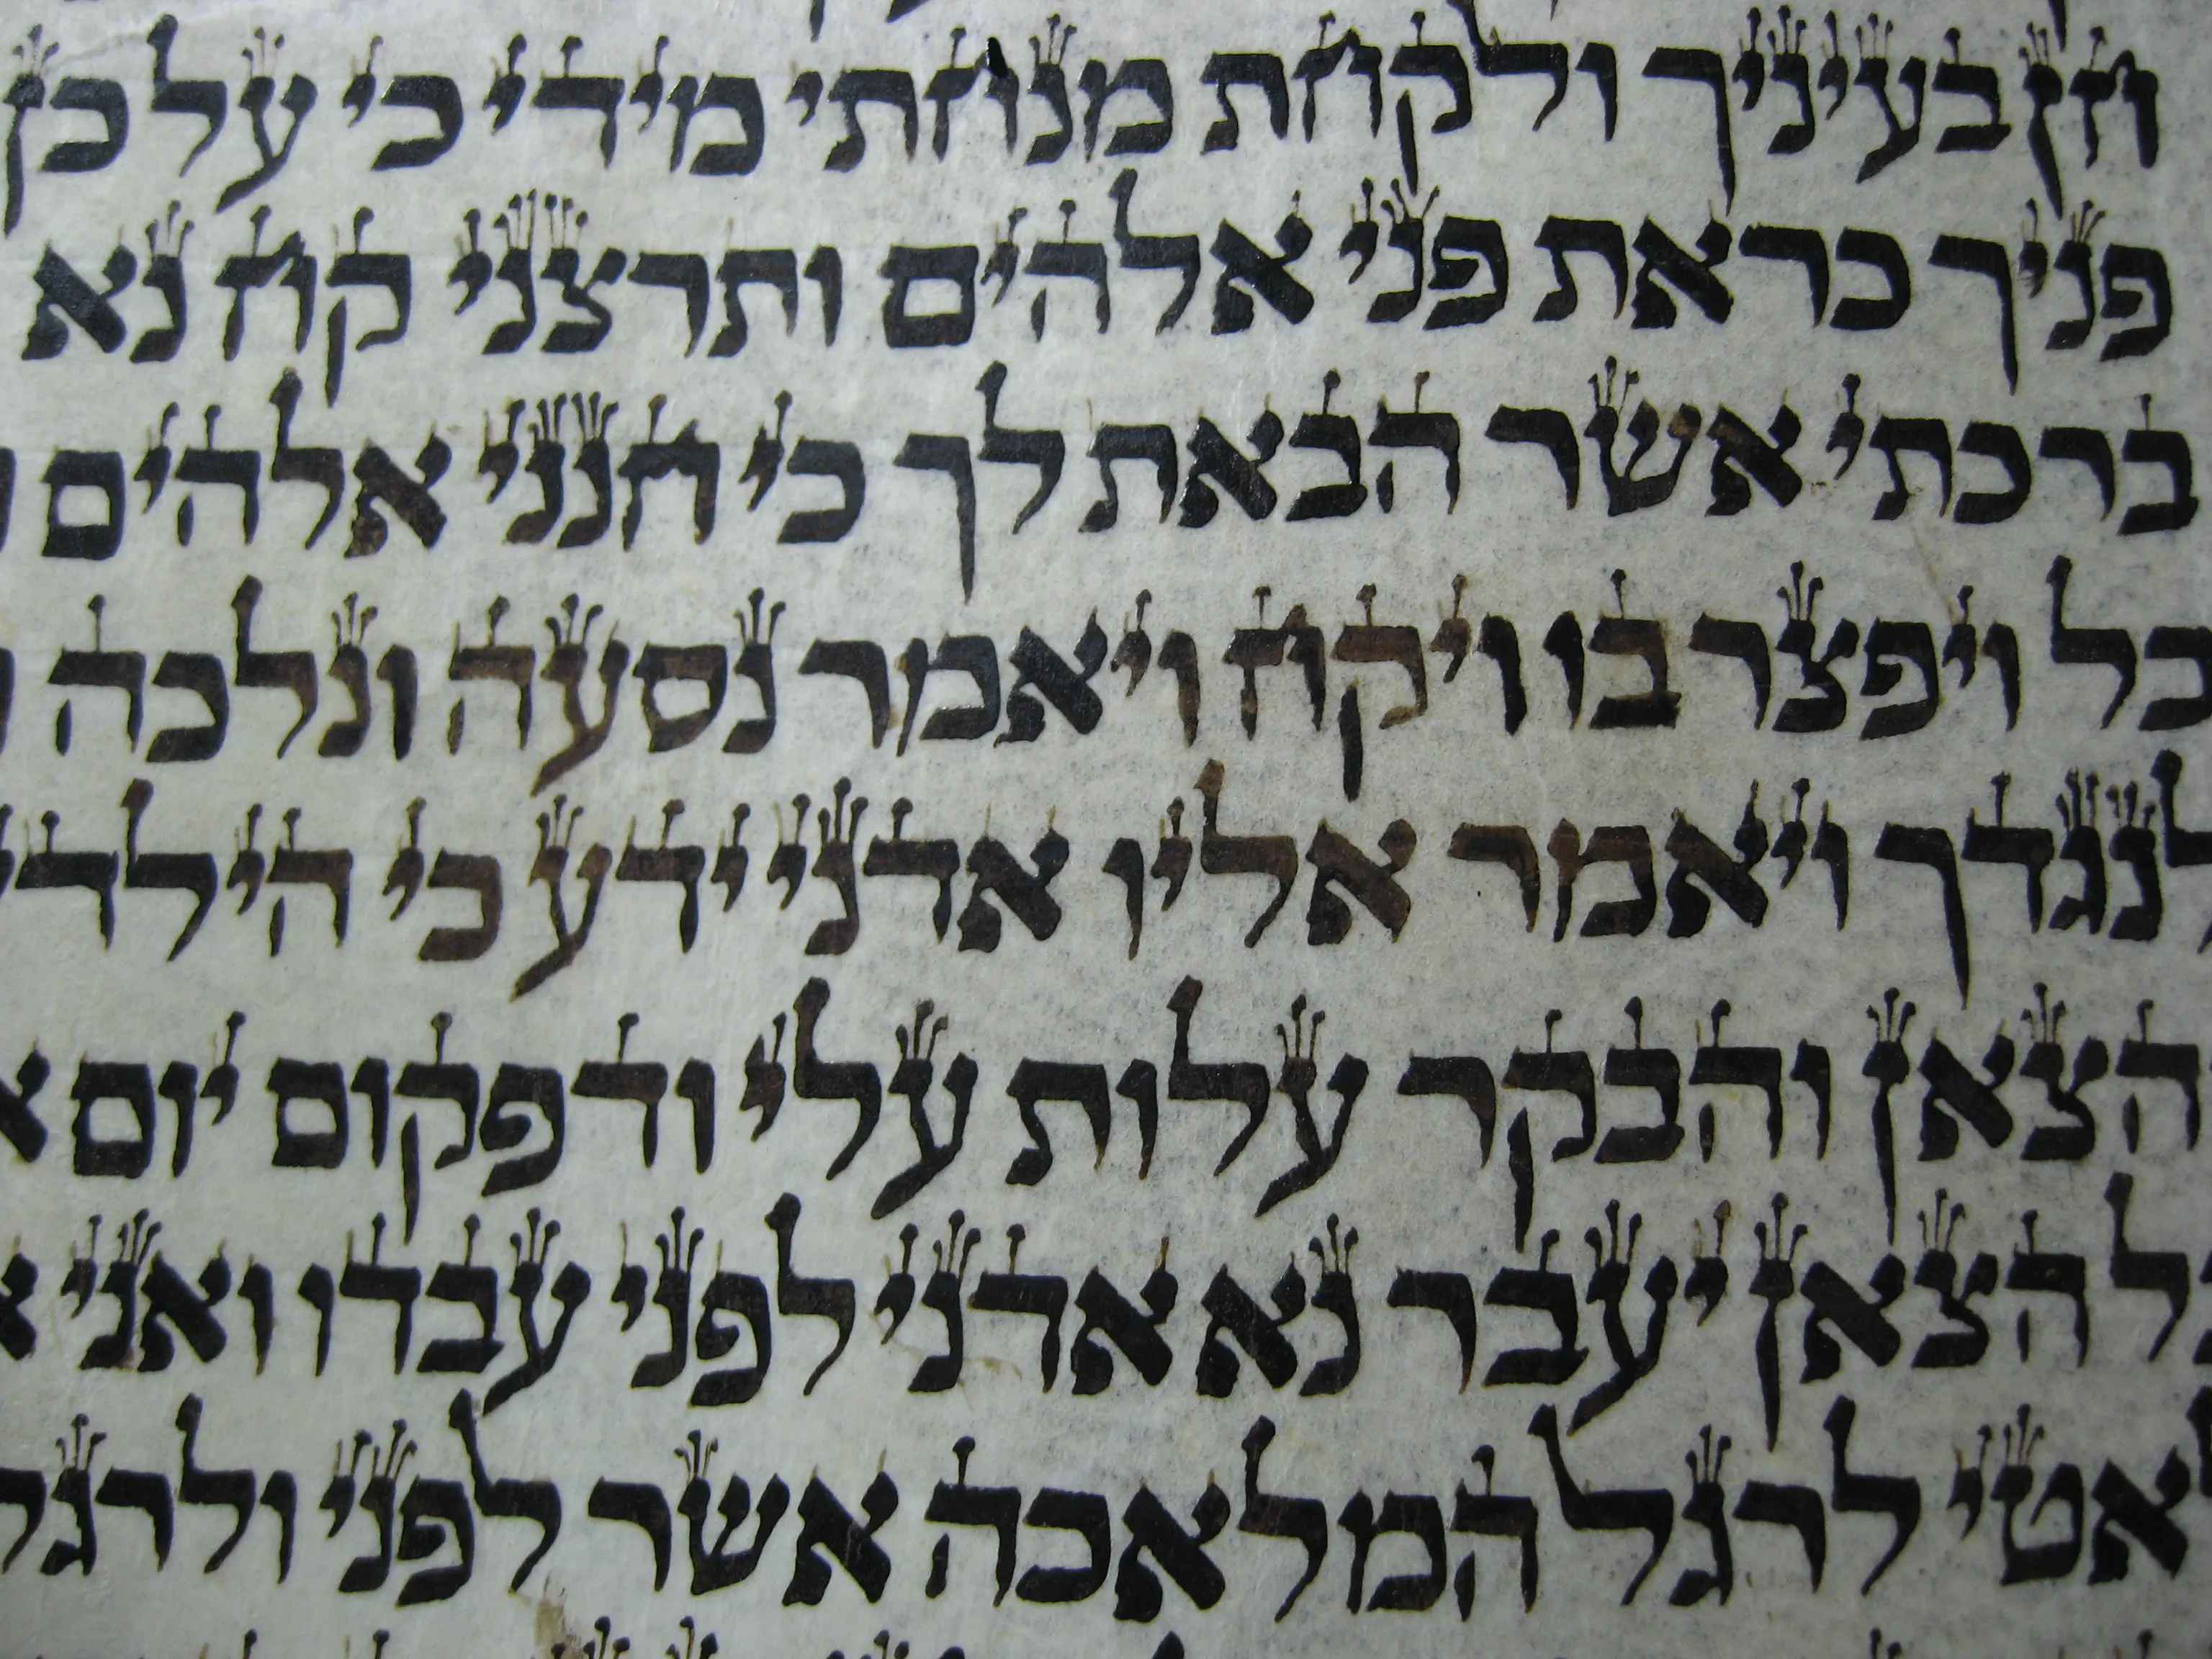 חן בעיניך ולקחת מנחתי מידי כי על כן
פניך כראת פני אלהים ותרצני קח נא
ברכתי אשר הבאת לך כי חנני אלהים
כל ויפצר בו ויקח ויאמר נסעה ונלכה
לנגדך ויאמר אליו אדני ידע כי הילד
הצאן והבקר עלות עלי ודפקום יום
כל הצאן יעבר נא אדני לפני עבדו ואני
לאטי לרגל המלאכה אשר לפני ולרגל